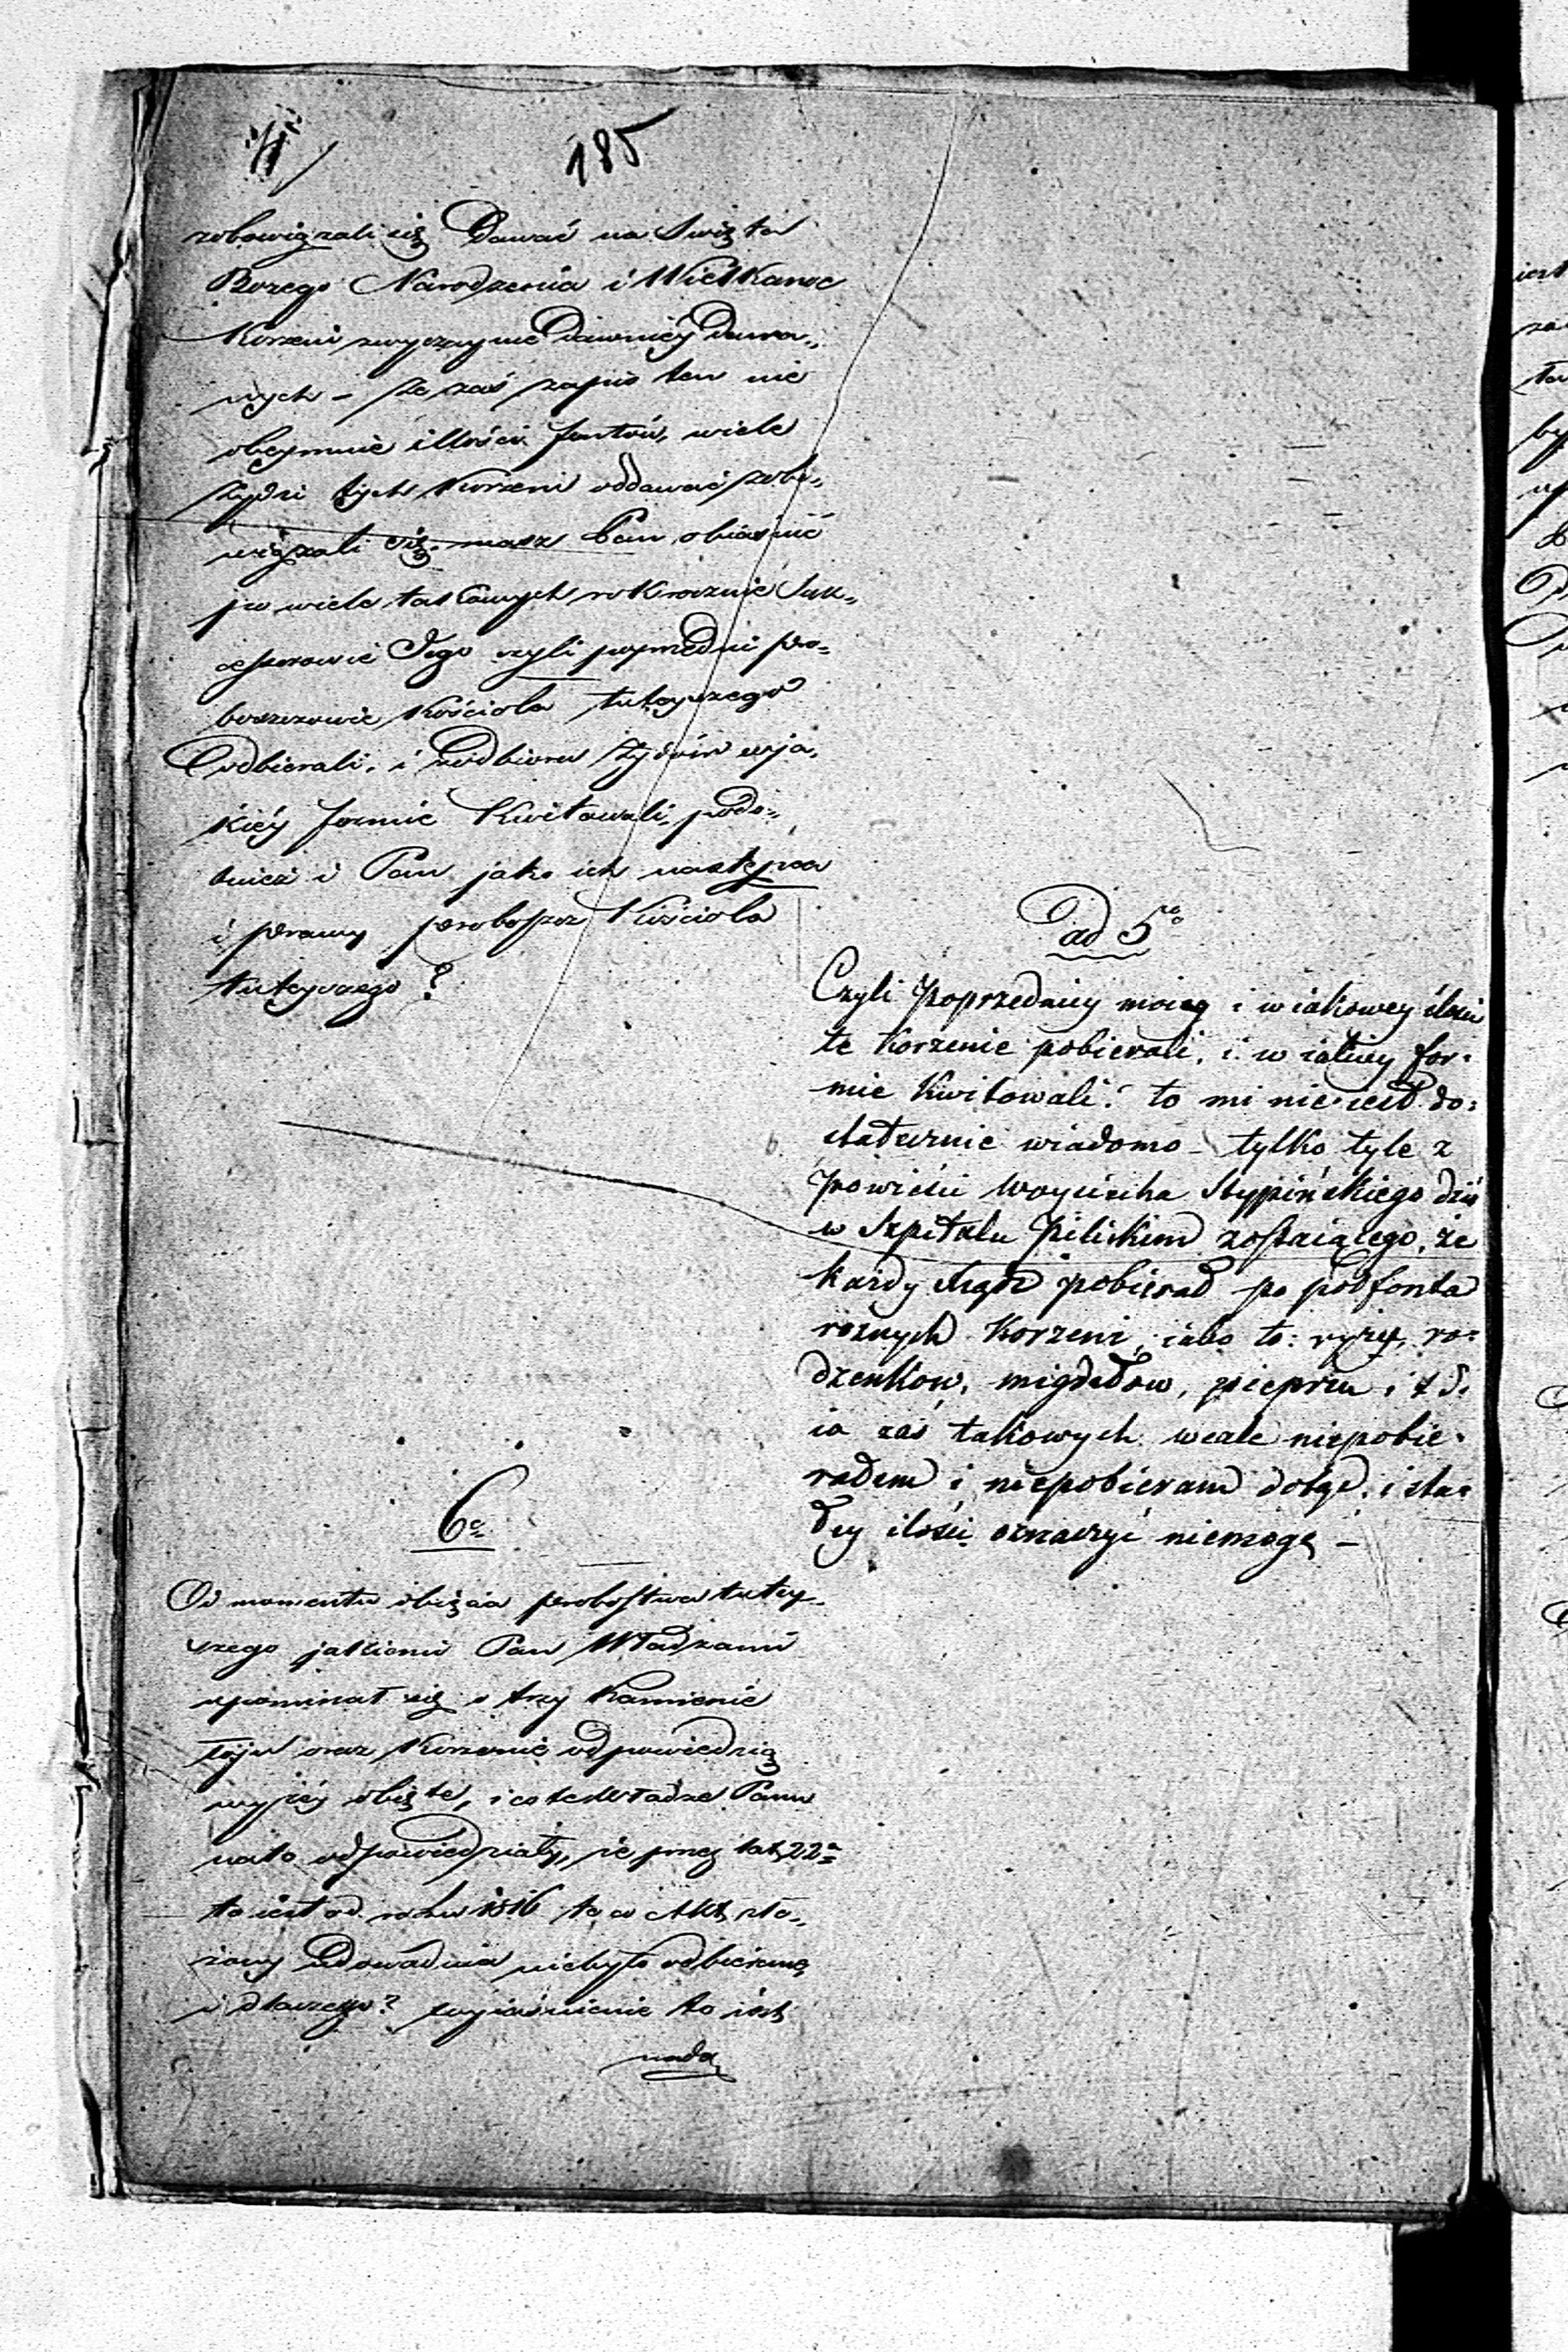 185
zobowiązali się Dawać na Święta
Bozego Narodzenia i Wielkanoc
Korzeni zwyczaynie dawniéy dawa„
nych – że zaś zapis ten nie
obeymuie illości funtów, wiele
Żydzi tych Korzeni oddawać zobo„
wiązali się, masz Pan obiaśnić
po wiele takowych rokrocznie Suk„
cessorowie Jego czyli poprzedni pro=
boszczowie Kościoła tuteyszego
odbierali, i z odbioru Żydów w ja„
kiéy formie Kwitowali, podo„
bnież i Pan jako ich następca
i prawy proboszcz Kościoła
tuteyszego?
ad 5to
Czyli Poprzednicy moiey i w iakowey ilości
te Korzenie pobierali, i w iakiey for:
mie Kwitowali? to mi nie iest do:
statecznie wiadomo – tylko tyle z
Powieści Woyciecha Stypińskiego dziś
w Szpitalu Pilickim zostaiącego, że
każdy Xiądz pobierał po pół fonta
rożnych Korzeni, iako to: ryżu, ro:
dzenkow, migdałow, pieprzu, i t d.
ia zaś takowych wcale niepobie:
rałem i niepobieram dotąd, i sta:
łey ilości oznaczyć niemogę –
6e
Od momentu obięcia probostwa tutey„
szego jakiemi Pan Władzami
upominał się o trzy Kamienie
łoju oraz Korzenie odpowiedzią
wyżéy obięte, i co te Władze Panu
na to odpowiedziały, że przez lat 22a
to iest od roku 1816 to co Akt zło„
żony udowadnia niebyło odbierane
i dlaczego? wyiaśnienie to iest
nada